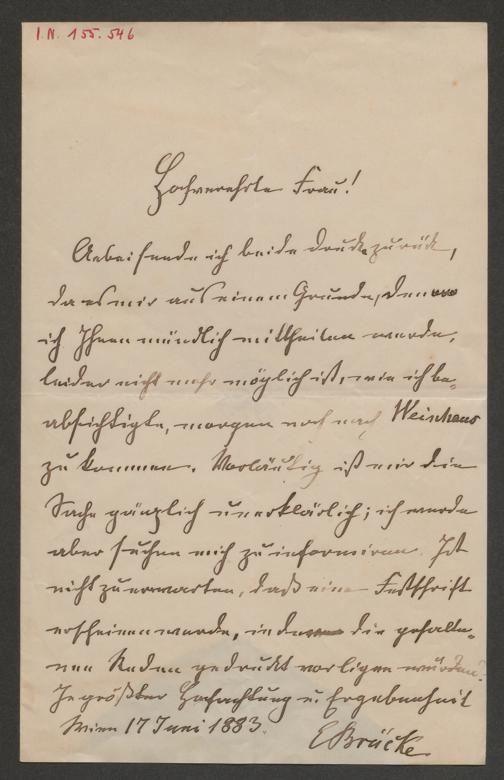 I.N. 155.546
Hochverehrte Frau!
sende ich beide Drucke zurück,
da es mir aus einem Grunde, den
ich Ihnen mündlich mittheilen werde,
leider nicht mehr möglich ist, wie ich be-
absichtigte, morgen noch nach
zu kommen. Vorläufig ist mir die
Sache gänzlich unerklärlich; ich werde
aber suchen mich zu informiren. Ist
nicht zu erwarten, daß eine Festschrift
erscheinen werde, in der die gehalte-
nen Reden gedruckt vorligen würden?
In größter Hochachtung u. Ergebenheit
Wien 17 Juni 1883.
E Brücke